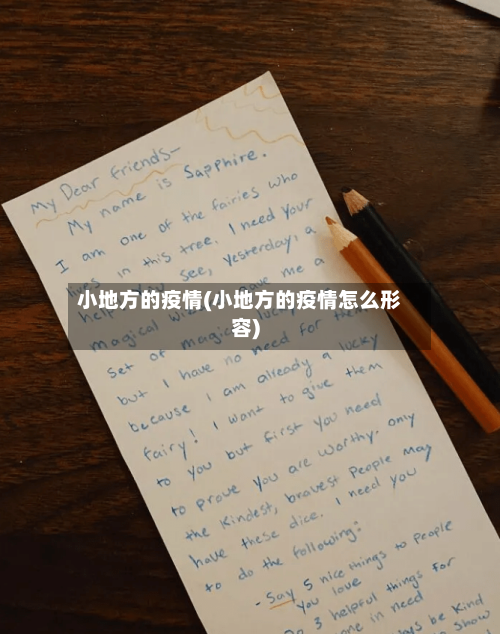 My Dear friends-
My name is Sapphire.
I am one of the fairies who
lives in this tree. I need your
help. You see, yesterday, a
magical gave me a
set of magic lucky
小地方的疫情(小地方的疫情怎么形
容)
but I have no need for them
because I am already a lucky
fairy! I want to give them
to you but first you need
to prove you are worthy. Only
the kindest, bravest people may
have these dice. I need you
to do the following:
- Say 5 nice things to people
you love
3 helpful things for
in need
be kind
show